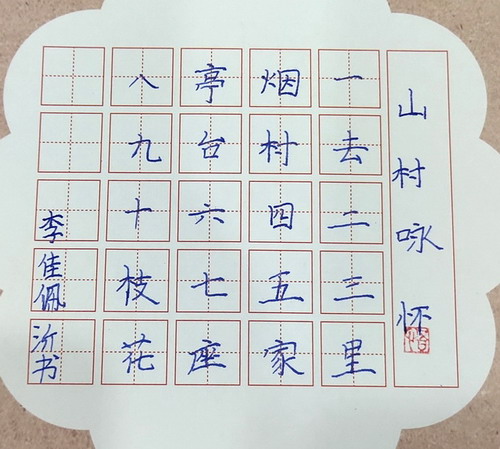 山村咏怀
一去二三里
烟村四五家
亭台六七座
八九十枝花
李佳佩
书